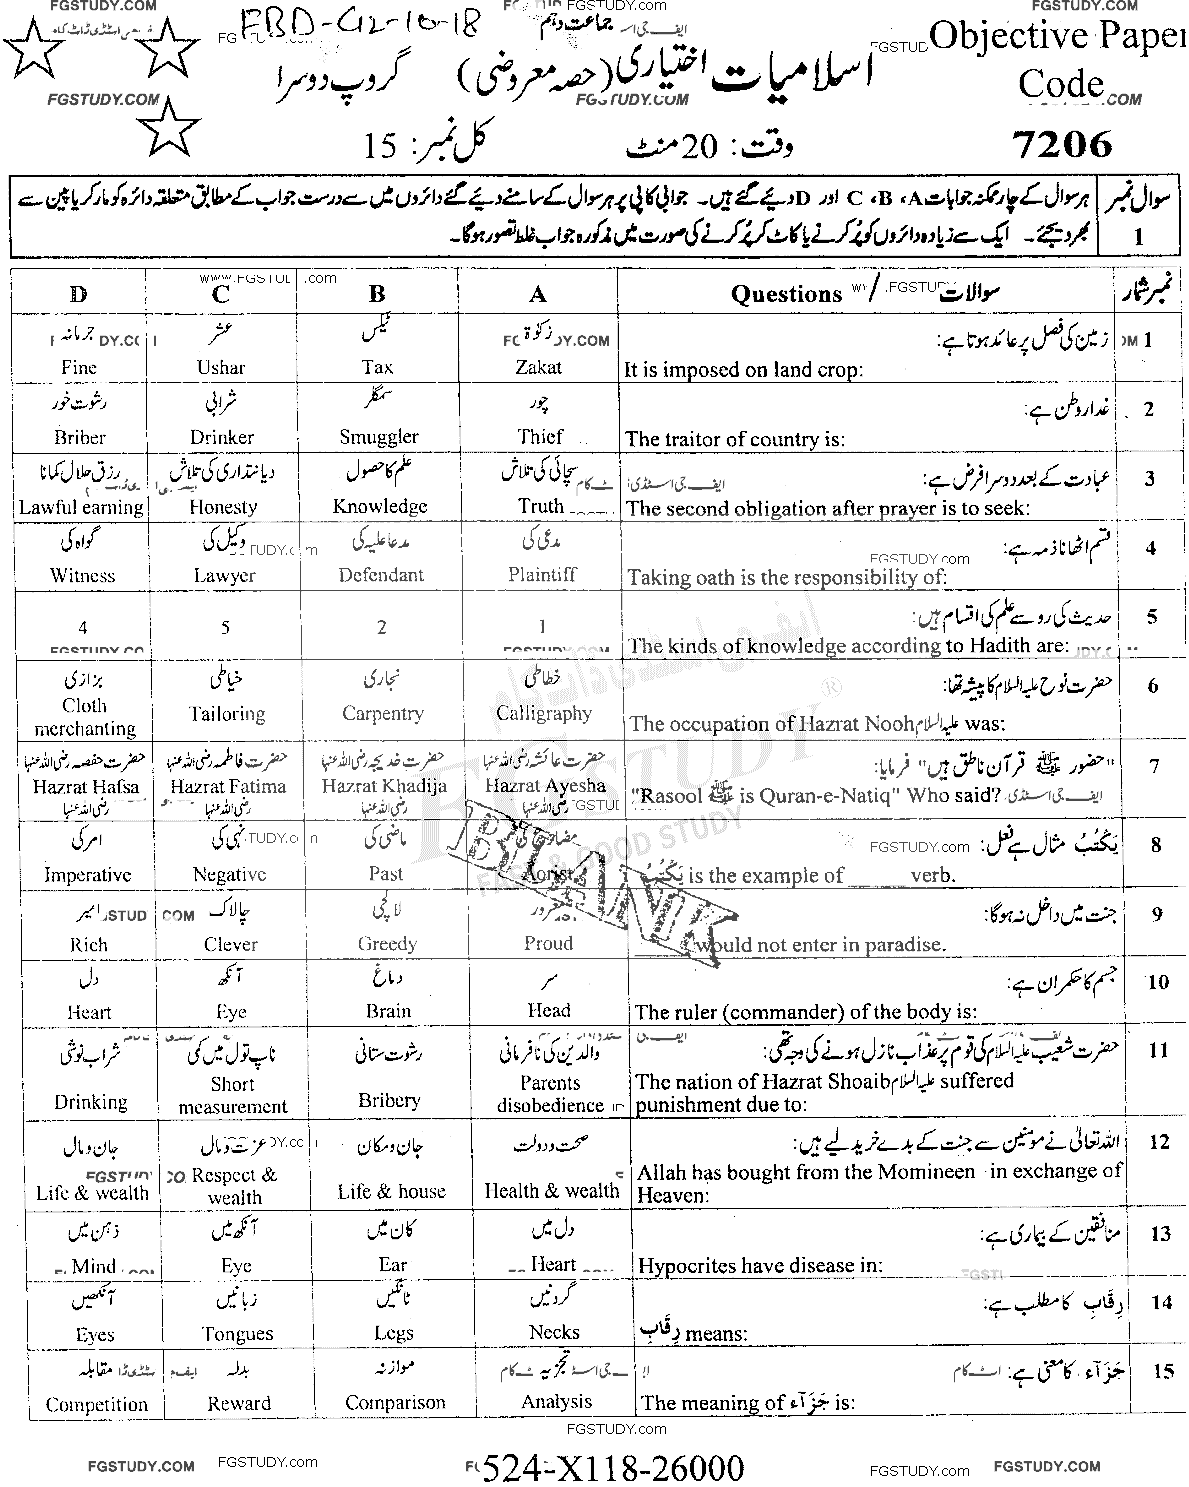 FGSTUDY.COM FGSTUDY.COM FGSTUDY.COM
FBD-G2-10-18
جماعت دہم
Objective Paper
Code
7206
اسلامیات اختیاری (حصہ معروضی) گروپ دوسرا
FGSTUDY.COM FGSTUDY.COM
وقت: 20 منٹ کل نمبر: 15
سوال نمبر 1
ہر سوال کے چار ممکنہ جوابات A، B، C اور D دیئے گئے ہیں۔ جوابی کاپی پر ہر سوال کے سامنے دیئے گئے دائروں میں سے درست جواب کے مطابق متعلقہ دائرہ کو مارکر یا پین سے
بھر دیجئے۔ ایک سے زیادہ دائروں کو پُر کرنے یا کاٹ کر پُر کرنے کی صورت میں مذکورہ جواب غلط تصور ہوگا۔
D C B A Questions / سوالات نمبر شمار
جرمانہ عشر ٹیکس زکوٰۃ زمین کی فصل پر عائد ہوتا ہے: 1
Fine Ushar Tax Zakat It is imposed on land crop:
رشوت خور شرابی سمگلر چور غدار وطن ہے: 2
Briber Drinker Smuggler Thief The traitor of country is:
رزق حلال کمانا دیانتداری کی تلاش علم کا حصول سچائی کی تلاش عبادت کے بعد دوسرا فرض ہے: 3
Lawful earning Honesty Knowledge Truth The second obligation after prayer is to seek:
گواہ کی وکیل کی مدعا علیہ کی مدعی کی قسم اٹھانا ذمہ ہے: 4
Witness Lawyer Defendant Plaintiff Taking oath is the responsibility of:
حدیث کی رو سے علم کی اقسام ہیں: 5
4 5 2 1 The kinds of knowledge according to Hadith are:
بزازی خیاطی نجاری خطاطی حضرت نوح علیہ السلام کا پیشہ تھا: 6
Cloth merchanting Tailoring Carpentry Calligraphy The occupation of Hazrat Nooh علیہ السلام was:
حضرت حفصہ رضی اللہ عنہا حضرت فاطمہ رضی اللہ عنہا حضرت خدیجہ رضی اللہ عنہا حضرت عائشہ رضی اللہ عنہا "حضور ﷺ قرآن ناطق ہیں" فرمایا: 7
Hazrat Hafsa رضی اللہ عنہا Hazrat Fatima رضی اللہ عنہا Hazrat Khadija رضی اللہ عنہا Hazrat Ayesha رضی اللہ عنہا "Rasool ﷺ is Quran-e-Natiq" Who said?
امر کی نہی کی ماضی کی مضارع کی یَکْتُبُ مثال ہے فعل: 8
Imperative Negative Past Aorist یَکْتُبُ is the example of ______ verb.
امیر چالاک لالچی مغرور جنت میں داخل نہ ہوگا: 9
Rich Clever Greedy Proud ______ would not enter in paradise.
دل آنکھ دماغ سر جسم کا حکمران ہے: 10
Heart Eye Brain Head The ruler (commander) of the body is:
شراب نوشی ناپ تول میں کمی رشوت ستانی والدین کی نافرمانی حضرت شعیب علیہ السلام کی قوم پر عذاب نازل ہونے کی وجہ تھی: 11
Drinking Short measurement Bribery Parents disobedience The nation of Hazrat Shoaib علیہ السلام suffered punishment due to:
جان و مال عزت و مال جان و مکان صحت و دولت اللہ تعالیٰ نے مومنین سے جنت کے بدلے خرید لیے ہیں: 12
Life & wealth Respect & wealth Life & house Health & wealth Allah has bought from the Momineen in exchange of Heaven:
ذہن میں آنکھ میں کان میں دل میں منافقین کے بیماری ہے: 13
Mind Eye Ear Heart Hypocrites have disease in:
آنکھیں زبانیں ٹانگیں گردنیں رِقَابِ کا مطلب ہے: 14
Eyes Tongues Legs Necks رِقَابِ means:
مقابلہ بدلہ موازنہ تجزیہ جَزَآءُ کا معنی ہے: 15
Competition Reward Comparison Analysis The meaning of جَزَآءُ is:
BLANK
FGSTUDY
FAST & GOOD STUDY
FGSTUDY.com
FGSTUDY.COM FGSTUDY.com 524-X118-26000 FGSTUDY.com FGSTUDY.COM